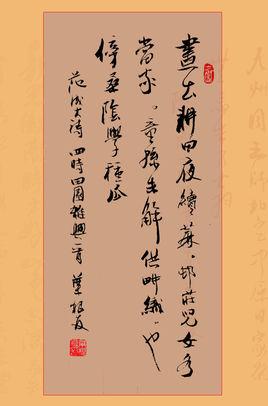 晝出耕田夜績麻。邨莊兒女各
當家。童孫未解供畊織。也
傍桑陰學種瓜
范成大詩 四時田園雜興一首 葉根友